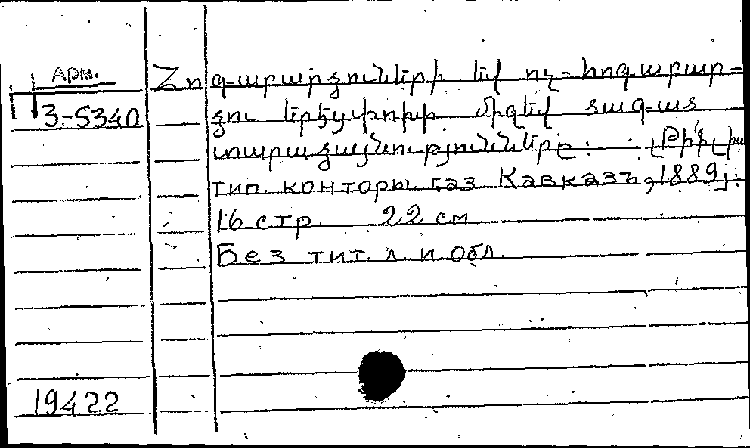 Арм. Հոգաբարձուների եվ ոչ-հոգաբար-
3-5340 ձու երեցփոխի միջեվ ծագած
տարաձայնությունները. [Թիֆլիս
тип. конторы газ. Кавказъ, 1889].
16 стр. 22 см
Без тит. л. и обл.
19422